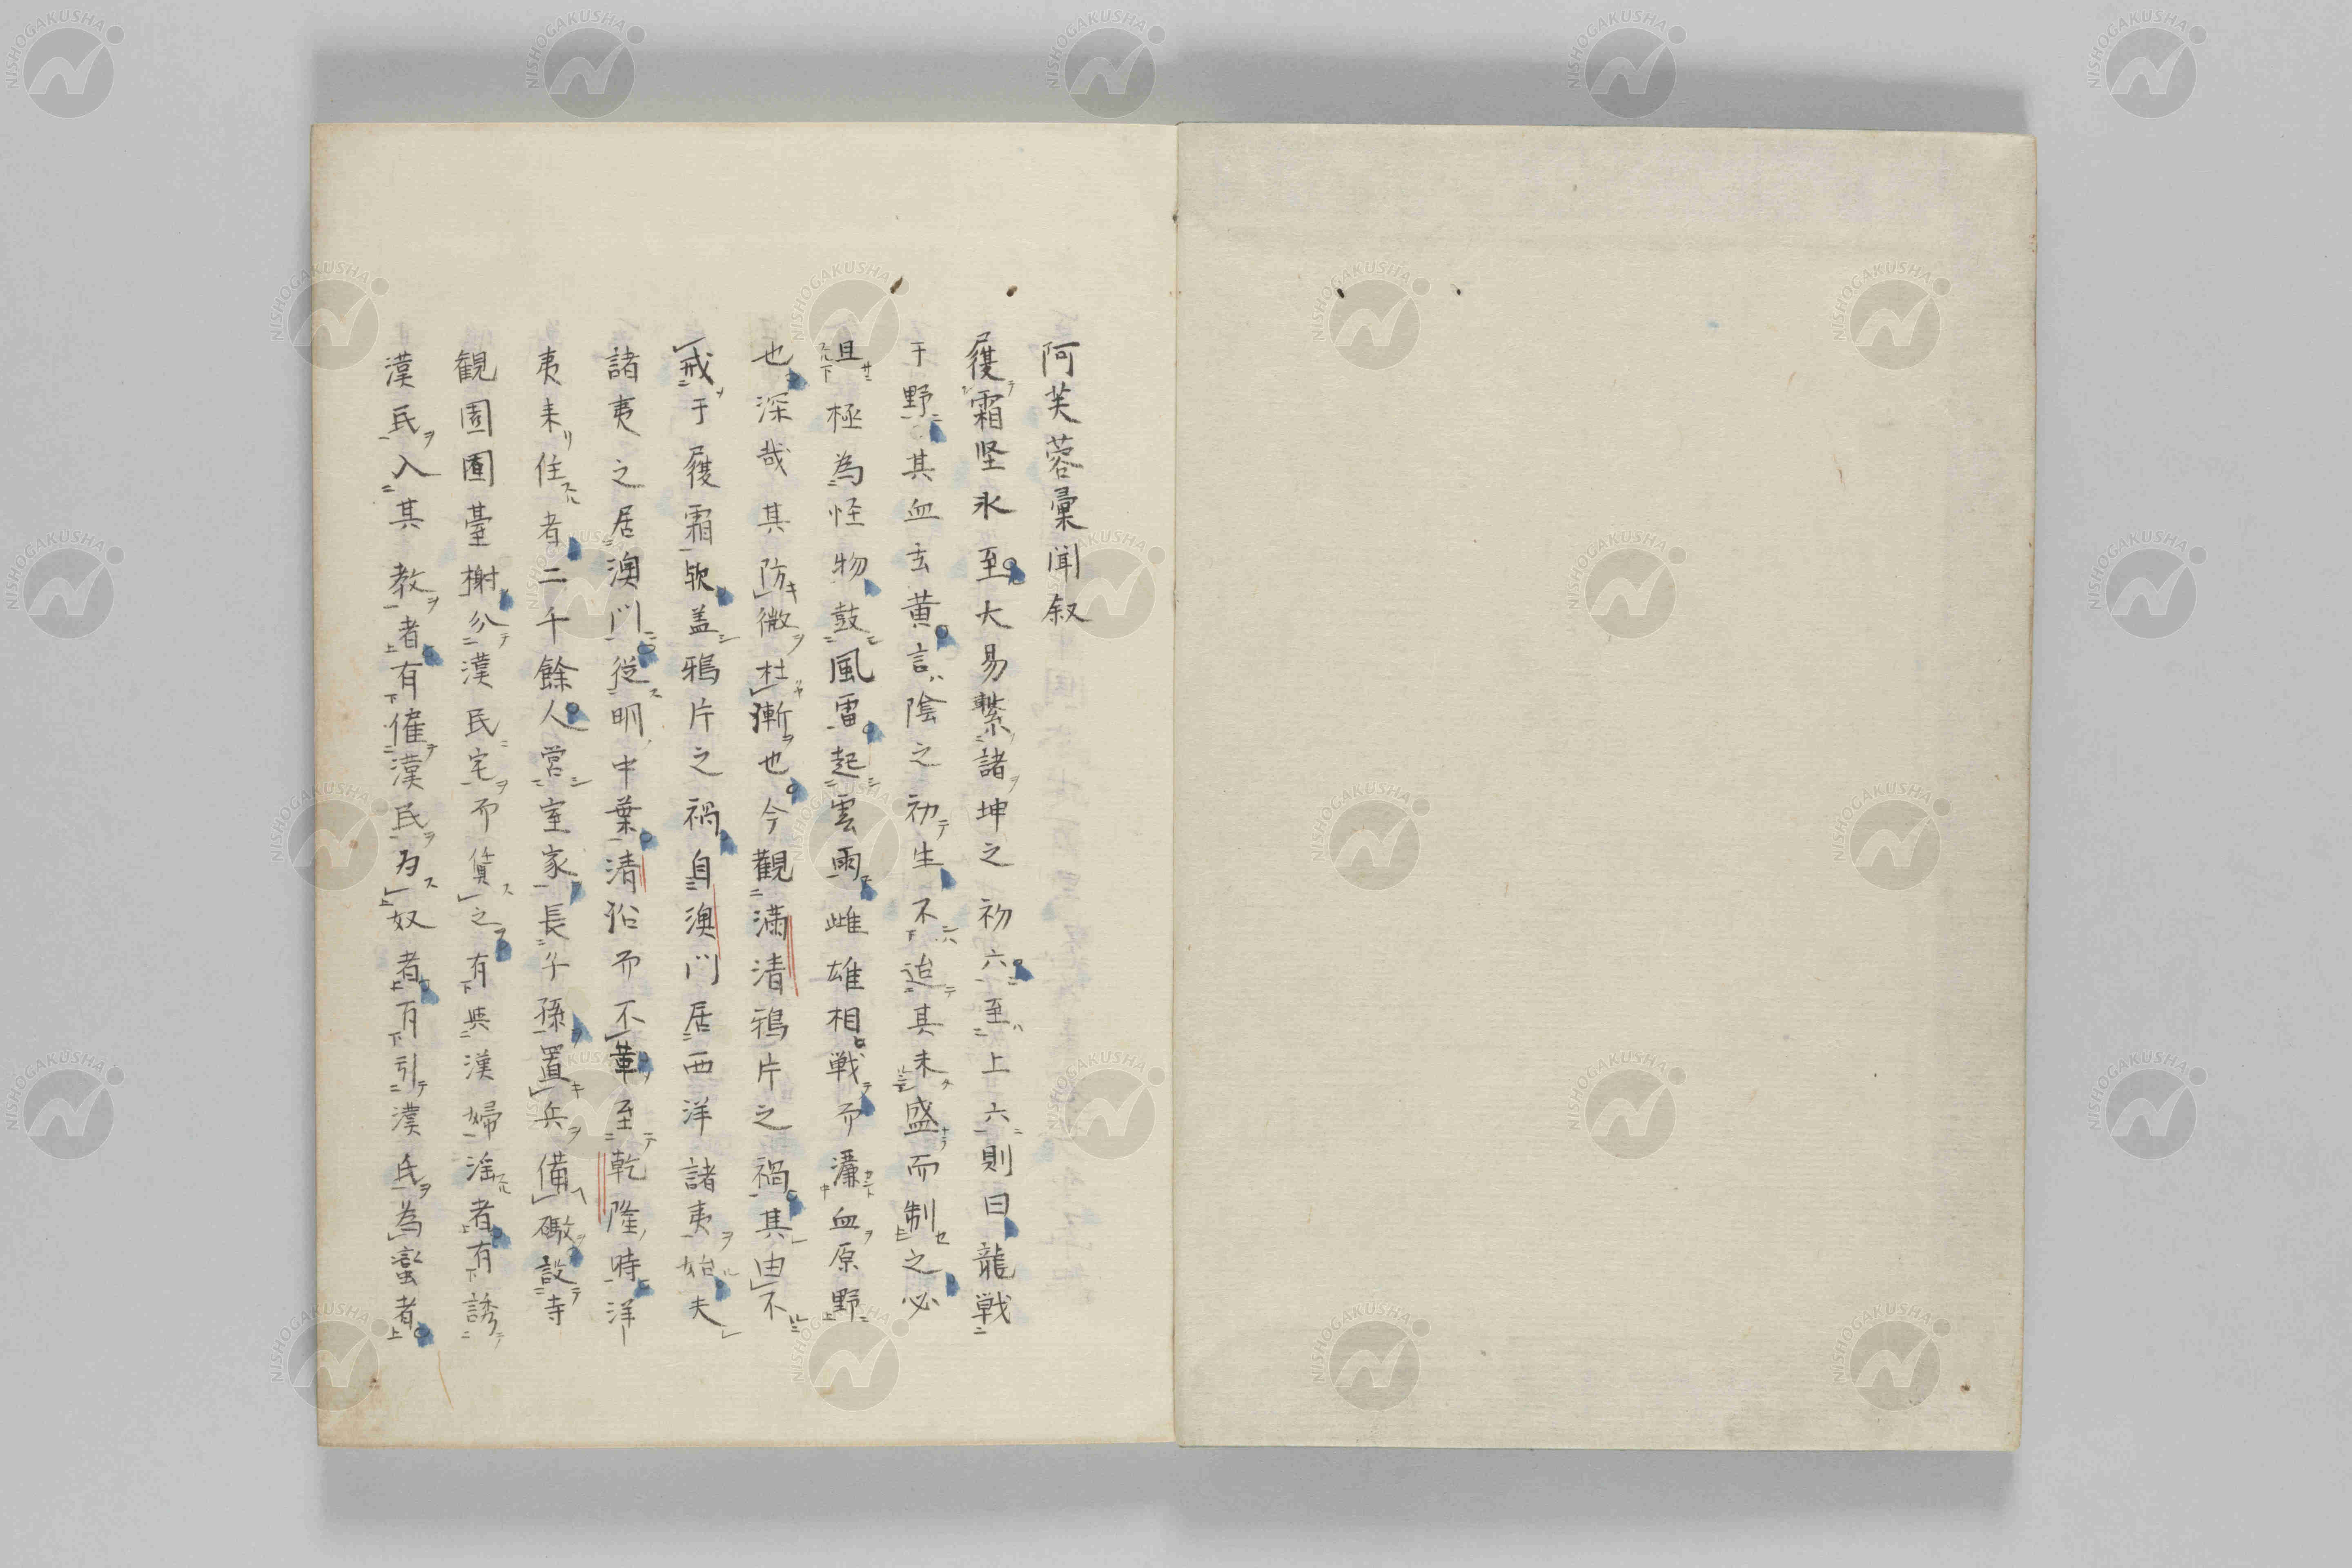 阿芙蓉彙聞叙
履霜堅氷至大易繫諸坤之初六至上六則曰龍戦
于野其血玄黄言陰之初生不迨其未盛而制之必
且極為怪物鼓風雷起雲雨雌雄相戦而灑血原野
也深哉其防微杜漸也今觀満清鴉片之禍其由不
戒于履霜歟盖鴉片之禍自澳門居西洋諸夷始夫
諸夷之居澳門従明中葉清沿而不革至乾隆時洋
夷来住者二千餘人営室家長子孫置兵備礮設寺
観園囿臺榭分漢民宅而賃之有與漢婦淫者有誘
漢民入其教者有傕漢民为奴者有引漢民為蛮者
NISHOGAKUSHA